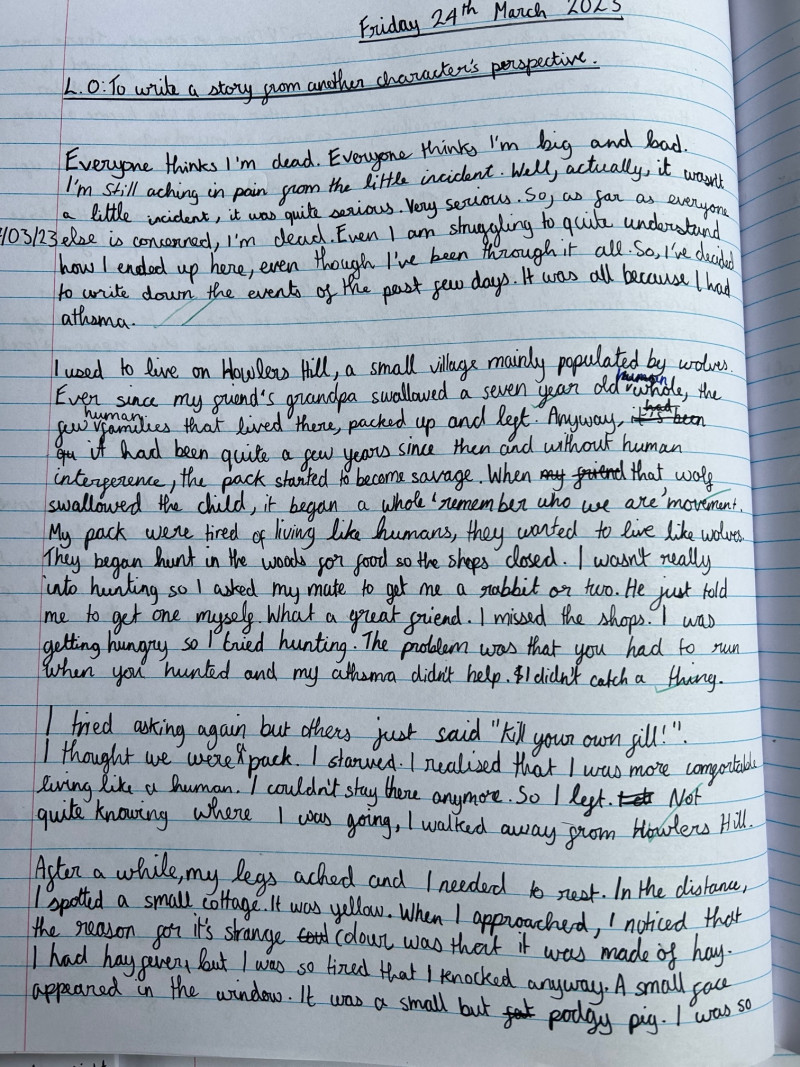 Friday 24th March 2023
L.O: To write a story from another character's perspective.
Everyone thinks I'm dead. Everyone thinks I'm big and bad.
I'm still aching in pain from the little incident. Well, actually, it wasn't
a little incident, it was quite serious. Very serious. So, as far as everyone
/03/23 else is concerned, I'm dead. Even I am struggling to quite understand
how I ended up here, even though I've been through it all. So, I've decided
to write down the events of the past few days. It was all because I had
athsma.
I used to live on Howlers Hill, a small village mainly populated by wolves.
Ever since my friend's grandpa swallowed a seven year old human whole, the
few human families that lived there, packed up and left. Anyway, it's been had
qu it had been quite a few years since then and without human
interference, the pack started to become savage. When my friend that wolf
swallowed the child, it began a whole 'remember who we are' movement.
My pack were tired of living like humans, they wanted to live like wolves.
They began hunt in the woods for food so the shops closed. I wasn't really
into hunting so I asked my mate to get me a rabbit or two. He just told
me to get one myself. What a great friend. I missed the shops. I was
getting hungry so I tried hunting. The problem was that you had to run
when you hunted and my athsma didn't help. I didn't catch a thing.
I tried asking again but others just said "Kill your own fill!".
I thought we were a pack. I starved. I realised that I was more comfortable
living like a human. I couldn't stay there anymore. So I left. Not
quite knowing where I was going, I walked away from Howlers Hill.
After a while, my legs ached and I needed to rest. In the distance,
I spotted a small cottage. It was yellow. When I approached, I noticed that
the reason for it's strange colour was that it was made of hay.
I had hayfever, but I was so tired that I knocked anyway. A small face
appeared in the window. It was a small but fat podgy pig. I was so